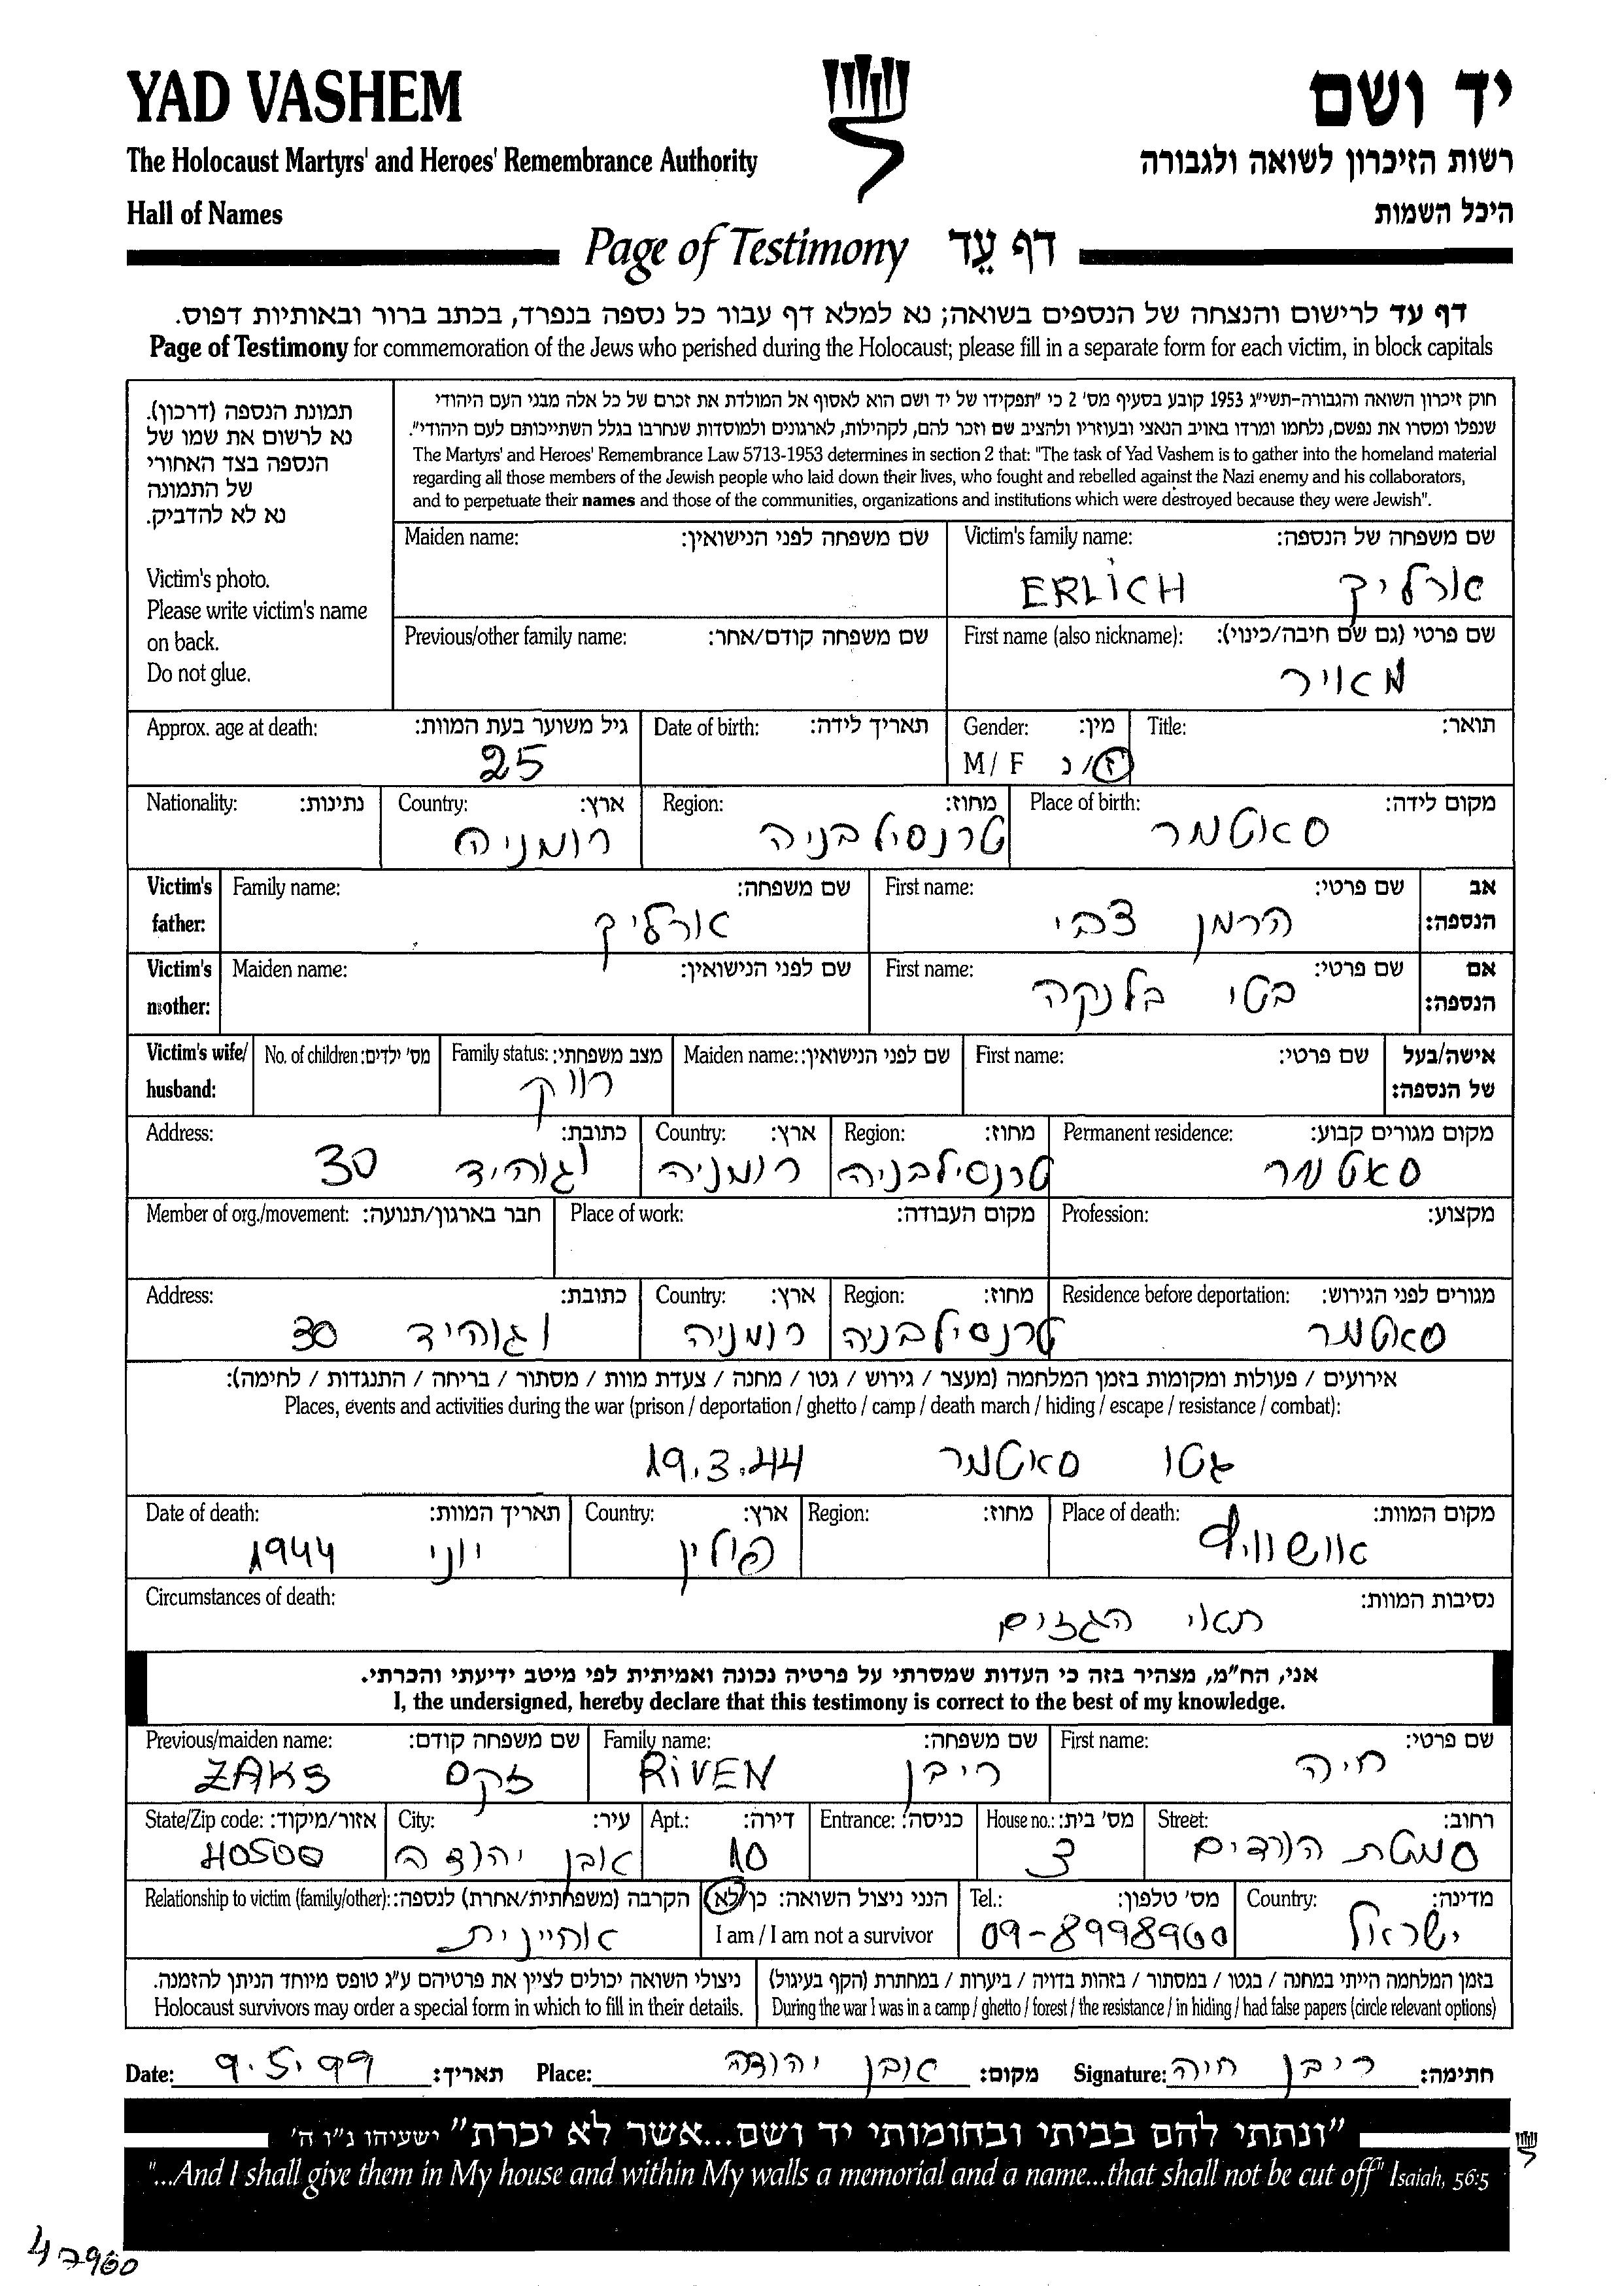 YAD VASHEM
יד ושם
The Holocaust Martyrs' and Heroes' Remembrance Authority
רשות הזיכרון לשואה ולגבורה
Hall of Names
היכל השמות
Page of Testimony דף עֵד
דף עד לרישום והנצחה של הנספים בשואה; נא למלא דף עבור כל נספה בנפרד, בכתב ברור ובאותיות דפוס.
Page of Testimony for commemoration of the Jews who perished during the Holocaust; please fill in a separate form for each victim, in block capitals
תמונת הנספה (דרכון).
נא לרשום את שמו של
הנספה בצד האחורי
של התמונה
נא לא להדביק.
Victim's photo.
Please write victim's name
on back.
Do not glue.
חוק זיכרון השואה והגבורה-תשי"ג 1953 קובע בסעיף מס' 2 כי "תפקידו של יד ושם הוא לאסוף אל המולדת את זכרם של כל אלה מבני העם היהודי
שנפלו ומסרו את נפשם, נלחמו ומרדו באויב הנאצי ובעוזריו ולהציב שם וזכר להם, לקהילות, לארגונים ולמוסדות שנחרבו בגלל השתייכותם לעם היהודי".
The Martyrs' and Heroes' Remembrance Law 5713-1953 determines in section 2 that: "The task of Yad Vashem is to gather into the homeland material
regarding all those members of the Jewish people who laid down their lives, who fought and rebelled against the Nazi enemy and his collaborators,
and to perpetuate their names and those of the communities, organizations and institutions which were destroyed because they were Jewish".
Maiden name: שם משפחה לפני הנישואין: Victim's family name: שם משפחה של הנספה:
ERLICH ארליך
Previous/other family name: שם משפחה קודם/אחר: First name (also nickname): שם פרטי (גם שם חיבה/כינוי):
מאיר
Approx. age at death: גיל משוער בעת המוות: Date of birth: תאריך לידה: Gender: מין: Title: תואר:
25 M / F ז/נ
Nationality: נתינות: Country: ארץ: Region: מחוז: Place of birth: מקום לידה:
רומניה טרנסילבניה סאטמר
Victim's father: Family name: שם משפחה: First name: שם פרטי: אב הנספה:
ארליך הרמן צבי
Victim's mother: Maiden name: שם לפני הנישואין: First name: שם פרטי: אם הנספה:
בטי בלנקה
Victim's wife/ husband: No. of children: מס' ילדים: Family status: מצב משפחתי: Maiden name: שם לפני הנישואין: First name: שם פרטי: אישה/בעל של הנספה:
רווק
Address: כתובת: Country: ארץ: Region: מחוז: Permanent residence: מקום מגורים קבוע:
30 רומניה טרנסילבניה סאטמר
Member of org./movement: חבר בארגון/תנועה: Place of work: מקום העבודה: Profession: מקצוע:
Address: כתובת: Country: ארץ: Region: מחוז: Residence before deportation: מגורים לפני הגירוש:
30 רומניה טרנסילבניה סאטמר
אירועים / פעולות ומקומות בזמן המלחמה (מעצר / גירוש / גטו / מחנה / צעדת מוות / מסתור / בריחה / התנגדות / לחימה):
Places, events and activities during the war (prison / deportation / ghetto / camp / death march / hiding / escape / resistance / combat):
גטו סאטמר 19.3.44
Date of death: תאריך המוות: Country: ארץ: Region: מחוז: Place of death: מקום המוות:
יוני 1944 פולין אושוויץ
Circumstances of death: נסיבות המוות:
תאי הגזים
אני, הח"מ, מצהיר בזה כי העדות שמסרתי על פרטיה נכונה ואמיתית לפי מיטב ידיעתי והכרתי.
I, the undersigned, hereby declare that this testimony is correct to the best of my knowledge.
Previous/maiden name: שם משפחה קודם: Family name: שם משפחה: First name: שם פרטי:
ZAKS זקס RIVEN ריבן חיה
State/Zip code: אזור/מיקוד: City: עיר: Apt.: דירה: Entrance: כניסה: House no.: מס' בית: Street: רחוב:
40500 אבן יהודה 10 3 סמטת הורדים
Relationship to victim (family/other): הקרבה (משפחתית/אחרת) לנספה: הנני ניצול השואה: כן/לא Tel.: מס' טלפון: Country: מדינה:
אחיינית I am / I am not a survivor 09-8998960 ישראל
ניצולי השואה יכולים לציין את פרטיהם ע"ג טופס מיוחד הניתן להזמנה. בזמן המלחמה הייתי במחנה / בגטו / במסתור / בזהות בדויה / ביערות / במחתרת (הקף בעיגול)
Holocaust survivors may order a special form in which to fill in their details. During the war I was in a camp / ghetto / forest / the resistance / in hiding / had false papers (circle relevant options)
Date: 9.5.99 תאריך: Place: אבן יהודה מקום: Signature: ריבן חיה חתימה:
"ונתתי להם בביתי ובחומותי יד ושם...אשר לא יכרת" ישעיהו נ"ו ה'
"...And I shall give them in My house and within My walls a memorial and a name...that shall not be cut off" Isaiah, 56:5
47960